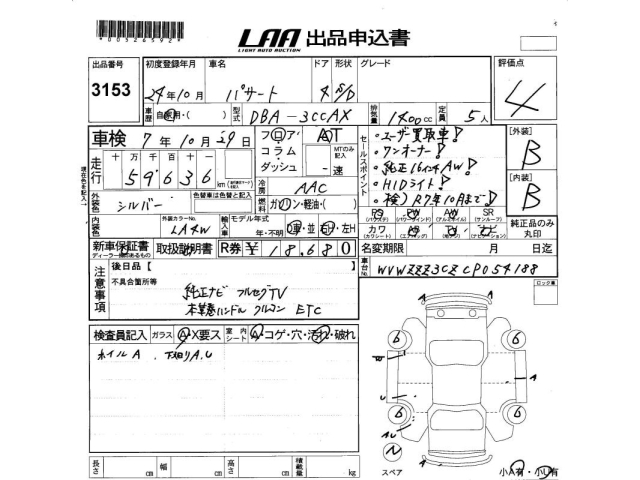 *0032659Z*
LAA 出品申込書
LIGHT AUTO AUCTION
出品番号
3153
初度登録年月
24年10月
車名
パサート
ドア 形状
4 S/D
グレード
評価点
4
車歴
自家用・( )
型式
DBA-3CCAX
排気量
1400cc
定員
5人
車検 7年10月29日
フロア・
コラム・
ダッシュ
AT
MTのみ記入
速
セールスポイント
・ユーザー買取車!
・ワンオーナー!
・純正16インチAW!
・HIDライト!
・検)R7年10月まで!
[外装]
B
[内装]
B
走行
十万千百十
59636
km
冷房
AAC
外装色
シルバー
色替車は色替と記入
燃料
ガソリン・軽油・( )
内装色
外装カラーNo.
LA4W
輸入車
モデル年式
年・不明
D車・並
右H・左H
PS PW AW SR
カワ
純正品のみ丸印
新車保証書
ディーラー印のあるもの
取扱説明書
R券 ¥18,680
名変期限 月 日迄
注意事項
後日品【
不具合箇所等
純正ナビ フルセグTV
本革巻ハンドル クルコン ETC
車台No.
WVWZZZ3CZCP054188
ロック車
検査員記入
ガラス
A・X要ス
室内シート
A・コゲ・穴・汚れ・破れ
ホイルA、下廻りA,U
A
W
U
A
A
U
6
6
6
6
N
スペア
小A有・小U有
長さ cm 幅 cm 高さ cm 積載量 kg